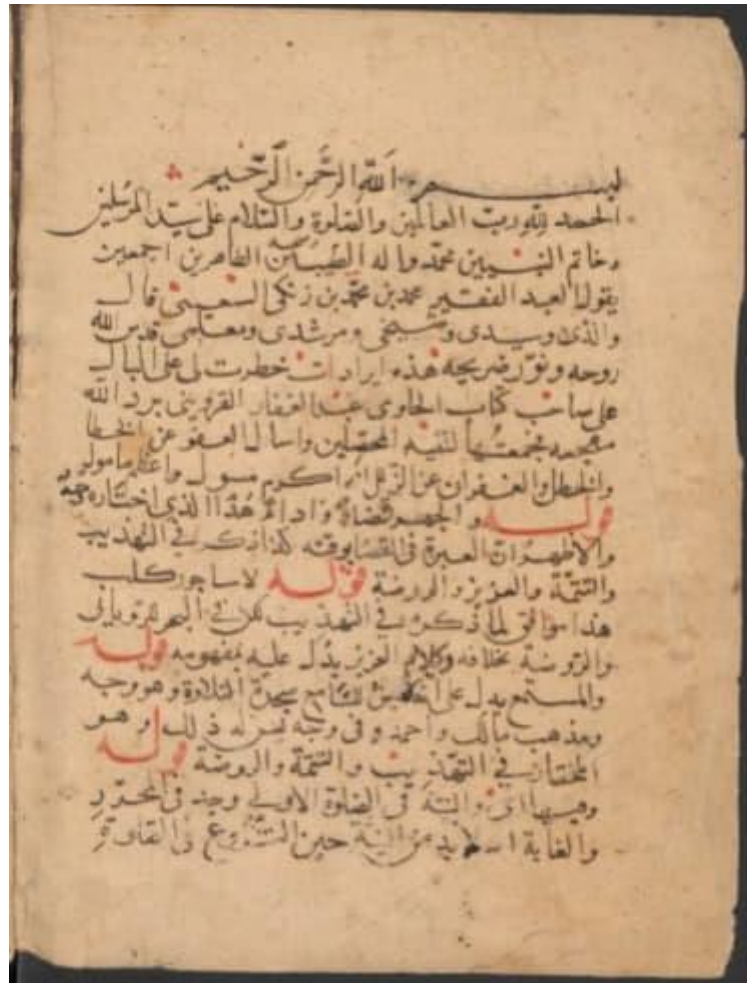 بسم الله الرحمن الرحيم
الحمد لله رب العالمين والصلوة والسلام على سيد المرسلين
وخاتم النبيين محمد واله الطيبين الطاهرين اجمعين
يقول العبد الفقير محمد بن محمد بن زنكى الشعيبى قال
والدى وسيدى وشيخى ومرشدى ومعلمى قدس الله
روحه ونور ضريحه هذه ايرادات خطرت لى على البال
على صاحب كتاب الحاوى عبد الغفار القزوينى برد الله
مضجعه فجمعتها لتنبيه المحصلين واسال العفو عن الخطا
والخطل والغفران عن الزلل انه اكرم مسول واعظم مامول
قوله والجهر قضاء واداء هذا الذى اختاره وجه
والاظهر ان العبرة فى القضا بوقته كذا ذكر فى التهذيب
والتتمة والعزيز والروضة قوله لا ساجور كلب
هذا موافق لما ذكره فى التهذيب لكن فى البحر للرويانى
والروضة بخلافه وكلام العزيز يدل عليه بمفهومه قوله
والمستمع يدل على للسامع سجدة التلاوة وهو وجه
ومذهب مالك واحمد وفى وجه يسن له ذلك وهو
المختار فى التهذيب والتتمة والروضة قوله
والنية فى الصلوة الاولى وجد فى المحرر
والغاية من النية حين الشروع فى